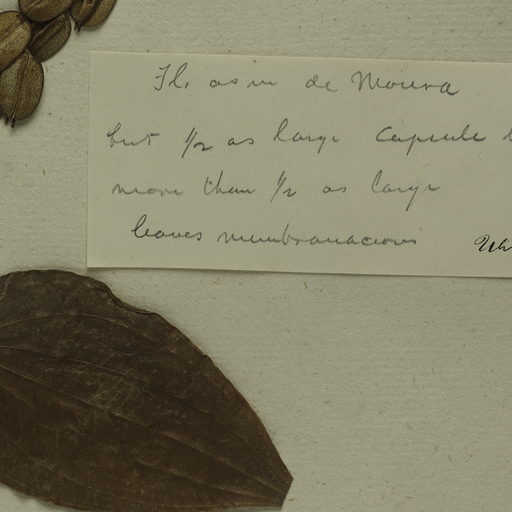 Fl. as in de Moura
but 1/2 as large capsule
more than 1/2 as large
leaves membranaceous